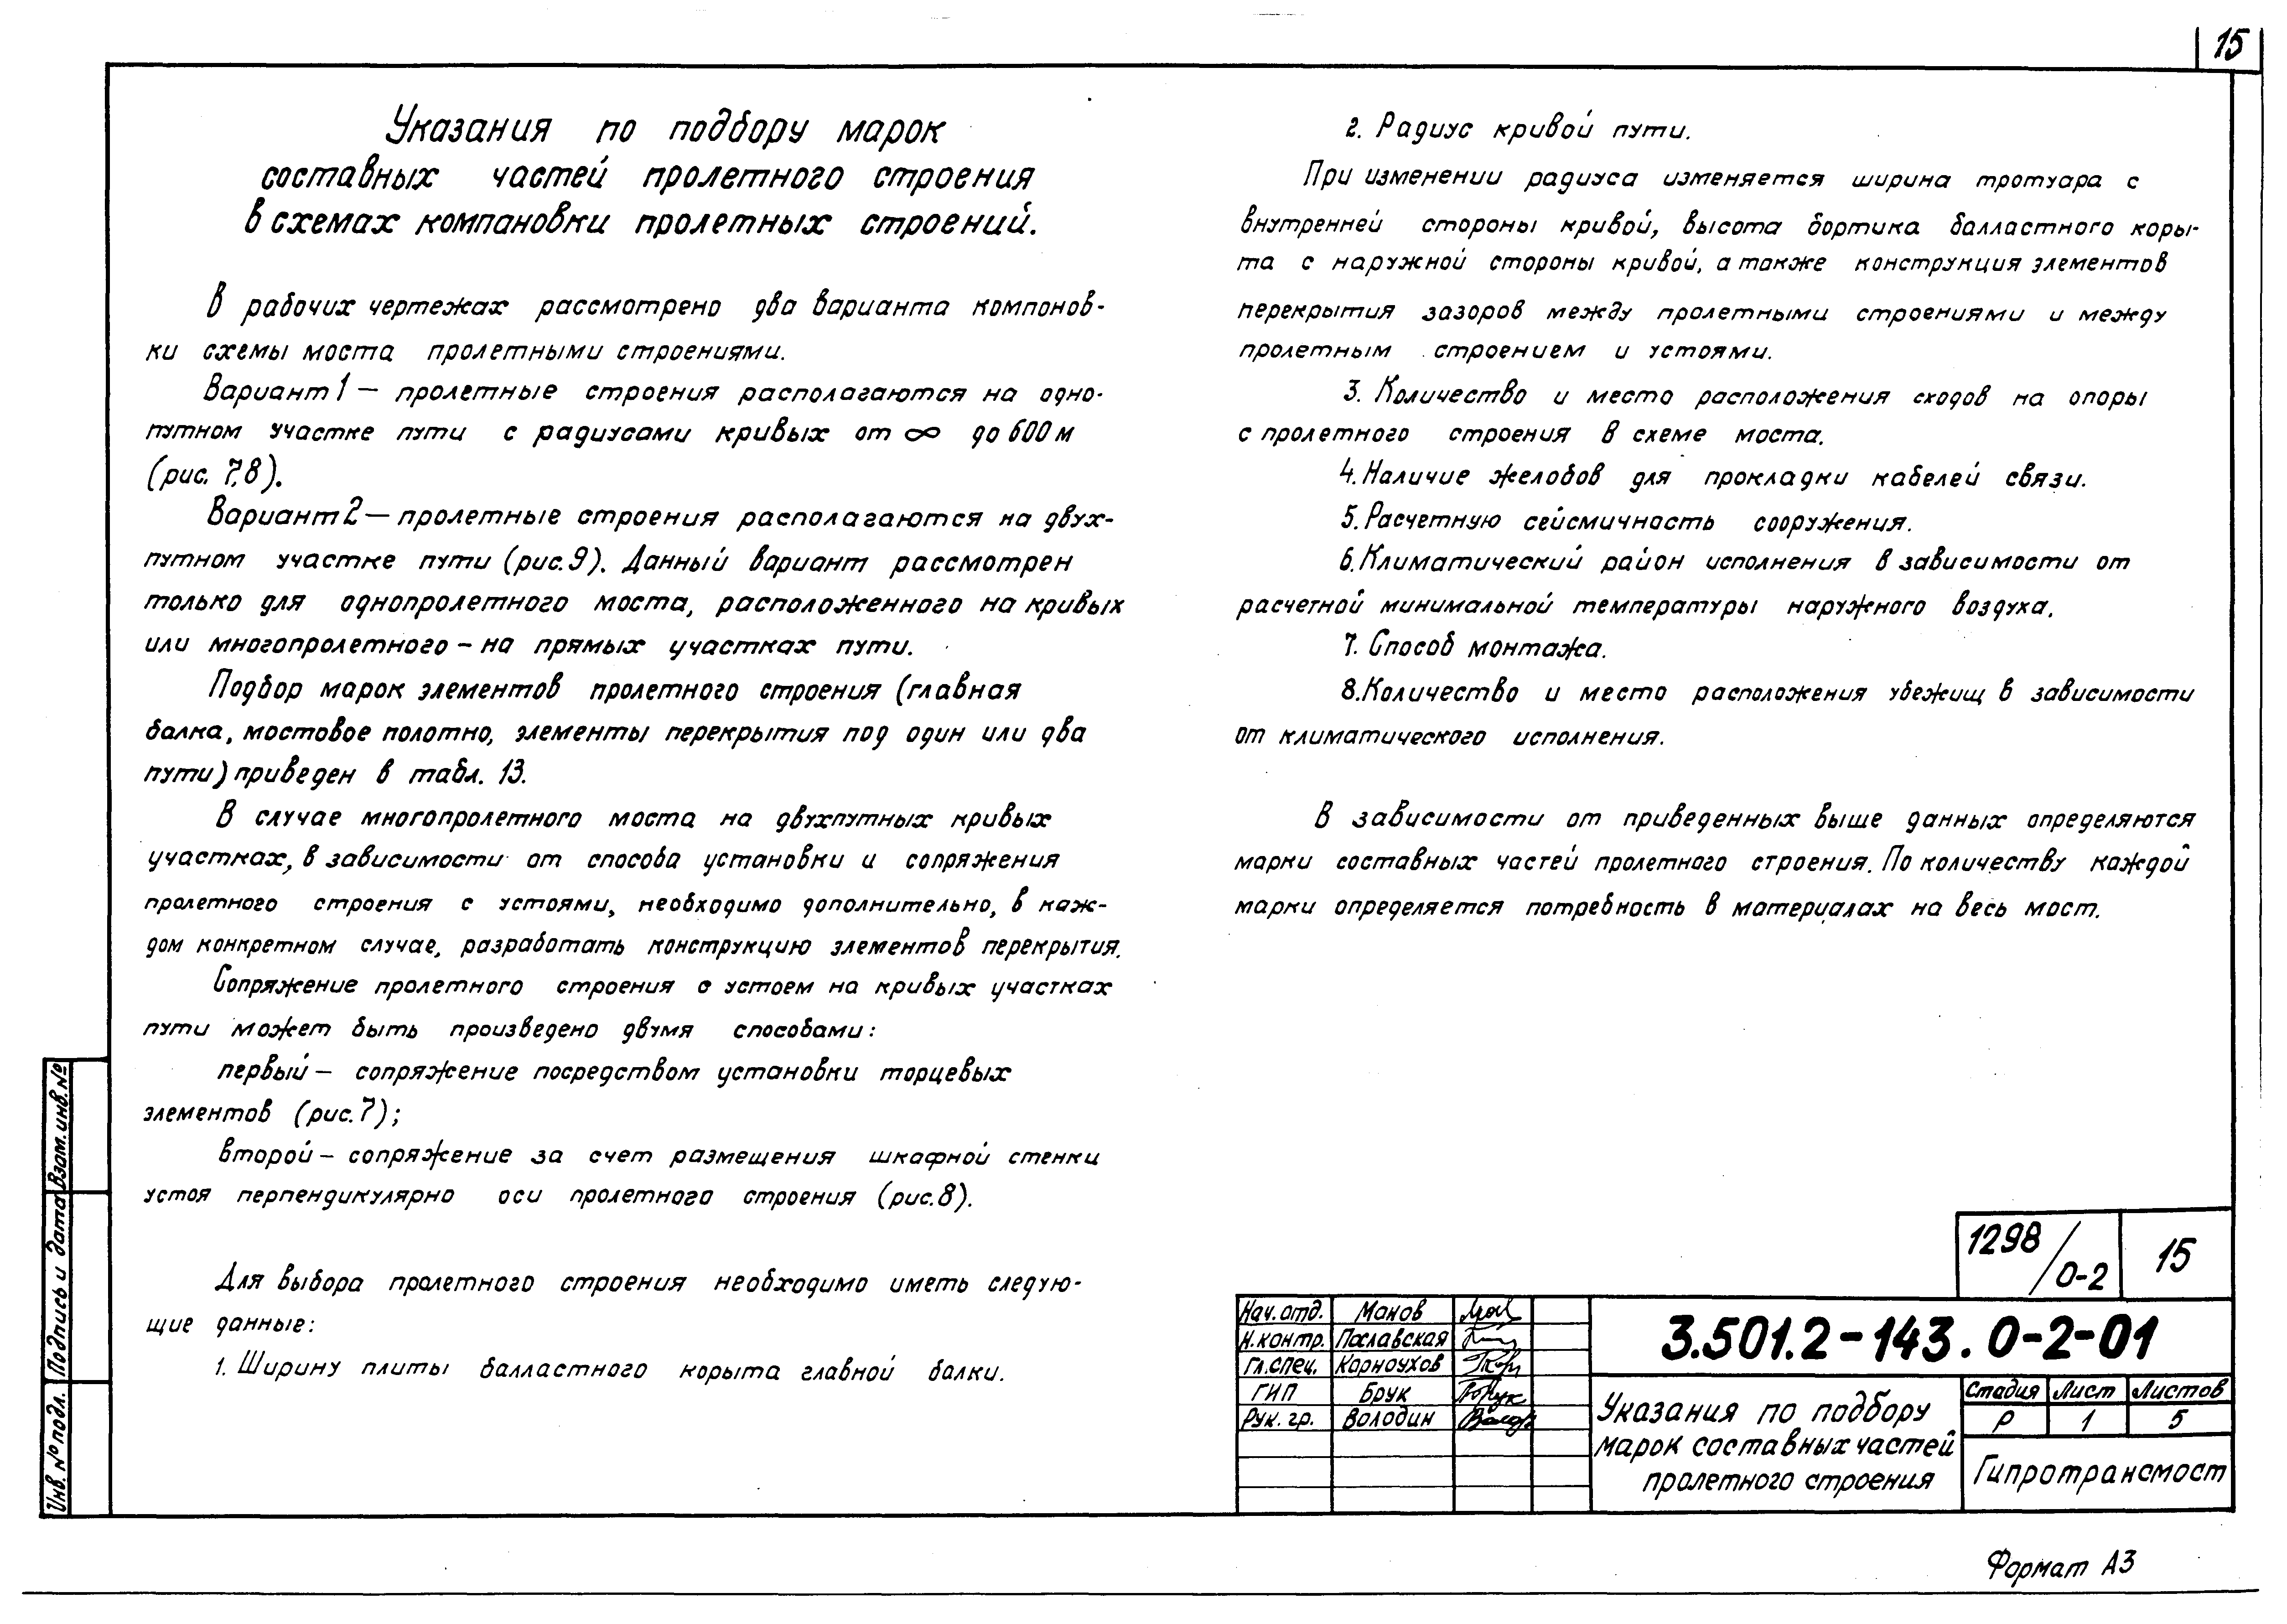 15
Указания по подбору марок
составных частей пролетного строения
в схемах компановки пролетных строений.
В рабочих чертежах рассмотрено два варианта компонов-
ки схемы моста пролетными строениями.
Вариант 1 — пролетные строения располагаются на одно-
путном участке пути с радиусами кривых от ∞ до 600 м
(рис. 7,8).
Вариант 2 — пролетные строения располагаются на двух-
путном участке пути (рис. 9). Данный вариант рассмотрен
только для однопролетного моста, расположенного на кривых
или многопролетного – на прямых участках пути.
Подбор марок элементов пролетного строения (главная
балка, мостовое полотно, элементы перекрытия под один или два
пути) приведен в табл. 13.
В случае многопролетного моста на двухпутных кривых
участках, в зависимости от способа установки и сопряжения
пролетного строения с устоями, необходимо дополнительно, в каж-
дом конкретном случае, разработать конструкцию элементов перекрытия.
Сопряжение пролетного строения с устоем на кривых участках
пути может быть произведено двумя способами:
первый – сопряжение посредством установки торцевых
элементов (рис. 7);
второй – сопряжение за счет размещения шкафной стенки
устоя перпендикулярно оси пролетного строения (рис. 8).
Для выбора пролетного строения необходимо иметь следую-
щие данные:
1. Ширину плиты балластного корыта главной балки.
2. Радиус кривой пути.
При изменении радиуса изменяется ширина тротуара с
внутренней стороны кривой, высота бортика балластного коры-
та с наружной стороны кривой, а также конструкция элементов
перекрытия зазоров между пролетными строениями и между
пролетным строением и устоями.
3. Количество и место расположения сходов на опоры
с пролетного строения в схеме моста.
4. Наличие желобов для прокладки кабелей связи.
5. Расчетную сейсмичность сооружения.
6. Климатический район исполнения в зависимости от
расчетной минимальной температуры наружного воздуха.
7. Способ монтажа.
8. Количество и место расположения убежищ в зависимости
от климатического исполнения.
В зависимости от приведенных выше данных определяются
марки составных частей пролетного строения. По количеству каждой
марки определяется потребность в материалах на весь мост.
1298/0-2 15
Нач. отд. Монов
Н. контр. Пославская
Гл. спец. Корноухов
ГИП Брук
Рук. гр. Володин
3.501.2-143.0-2-01
Указания по подбору
марок составных частей
пролетного строения
Стадия Лист Листов
Р 1 5
Гипротрансмост
Инв. № подл. Подпись и дата Взам. инв. №
Формат А3